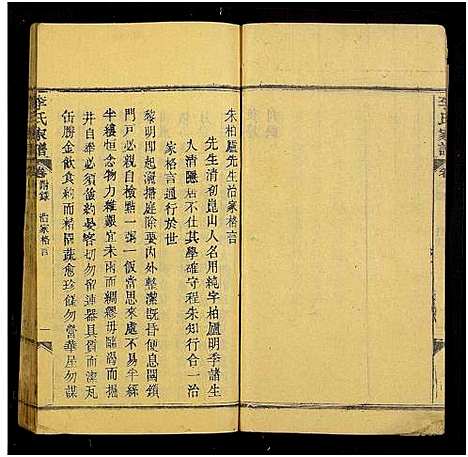 李氏家譜
卷
朱柏廬先生治家格言
先生清初崑山人名用純字柏廬明季諸生
入清隱居不仕其學確守程朱知行合一治
家格言通行於世
黎明即起灑掃庭除要內外整潔既昏便息關鎖
門戶必親自檢點一粥一飯當思來處不易半絲
半縷恒念物力維艱宜未雨而綢繆毋臨渴而掘
井自奉必須儉約宴客切勿留連器具質而潔瓦
缶勝金飲食約而精園蔬愈珍饈勿營華屋勿謀
李氏家譜
卷 附錄 治家格言 一